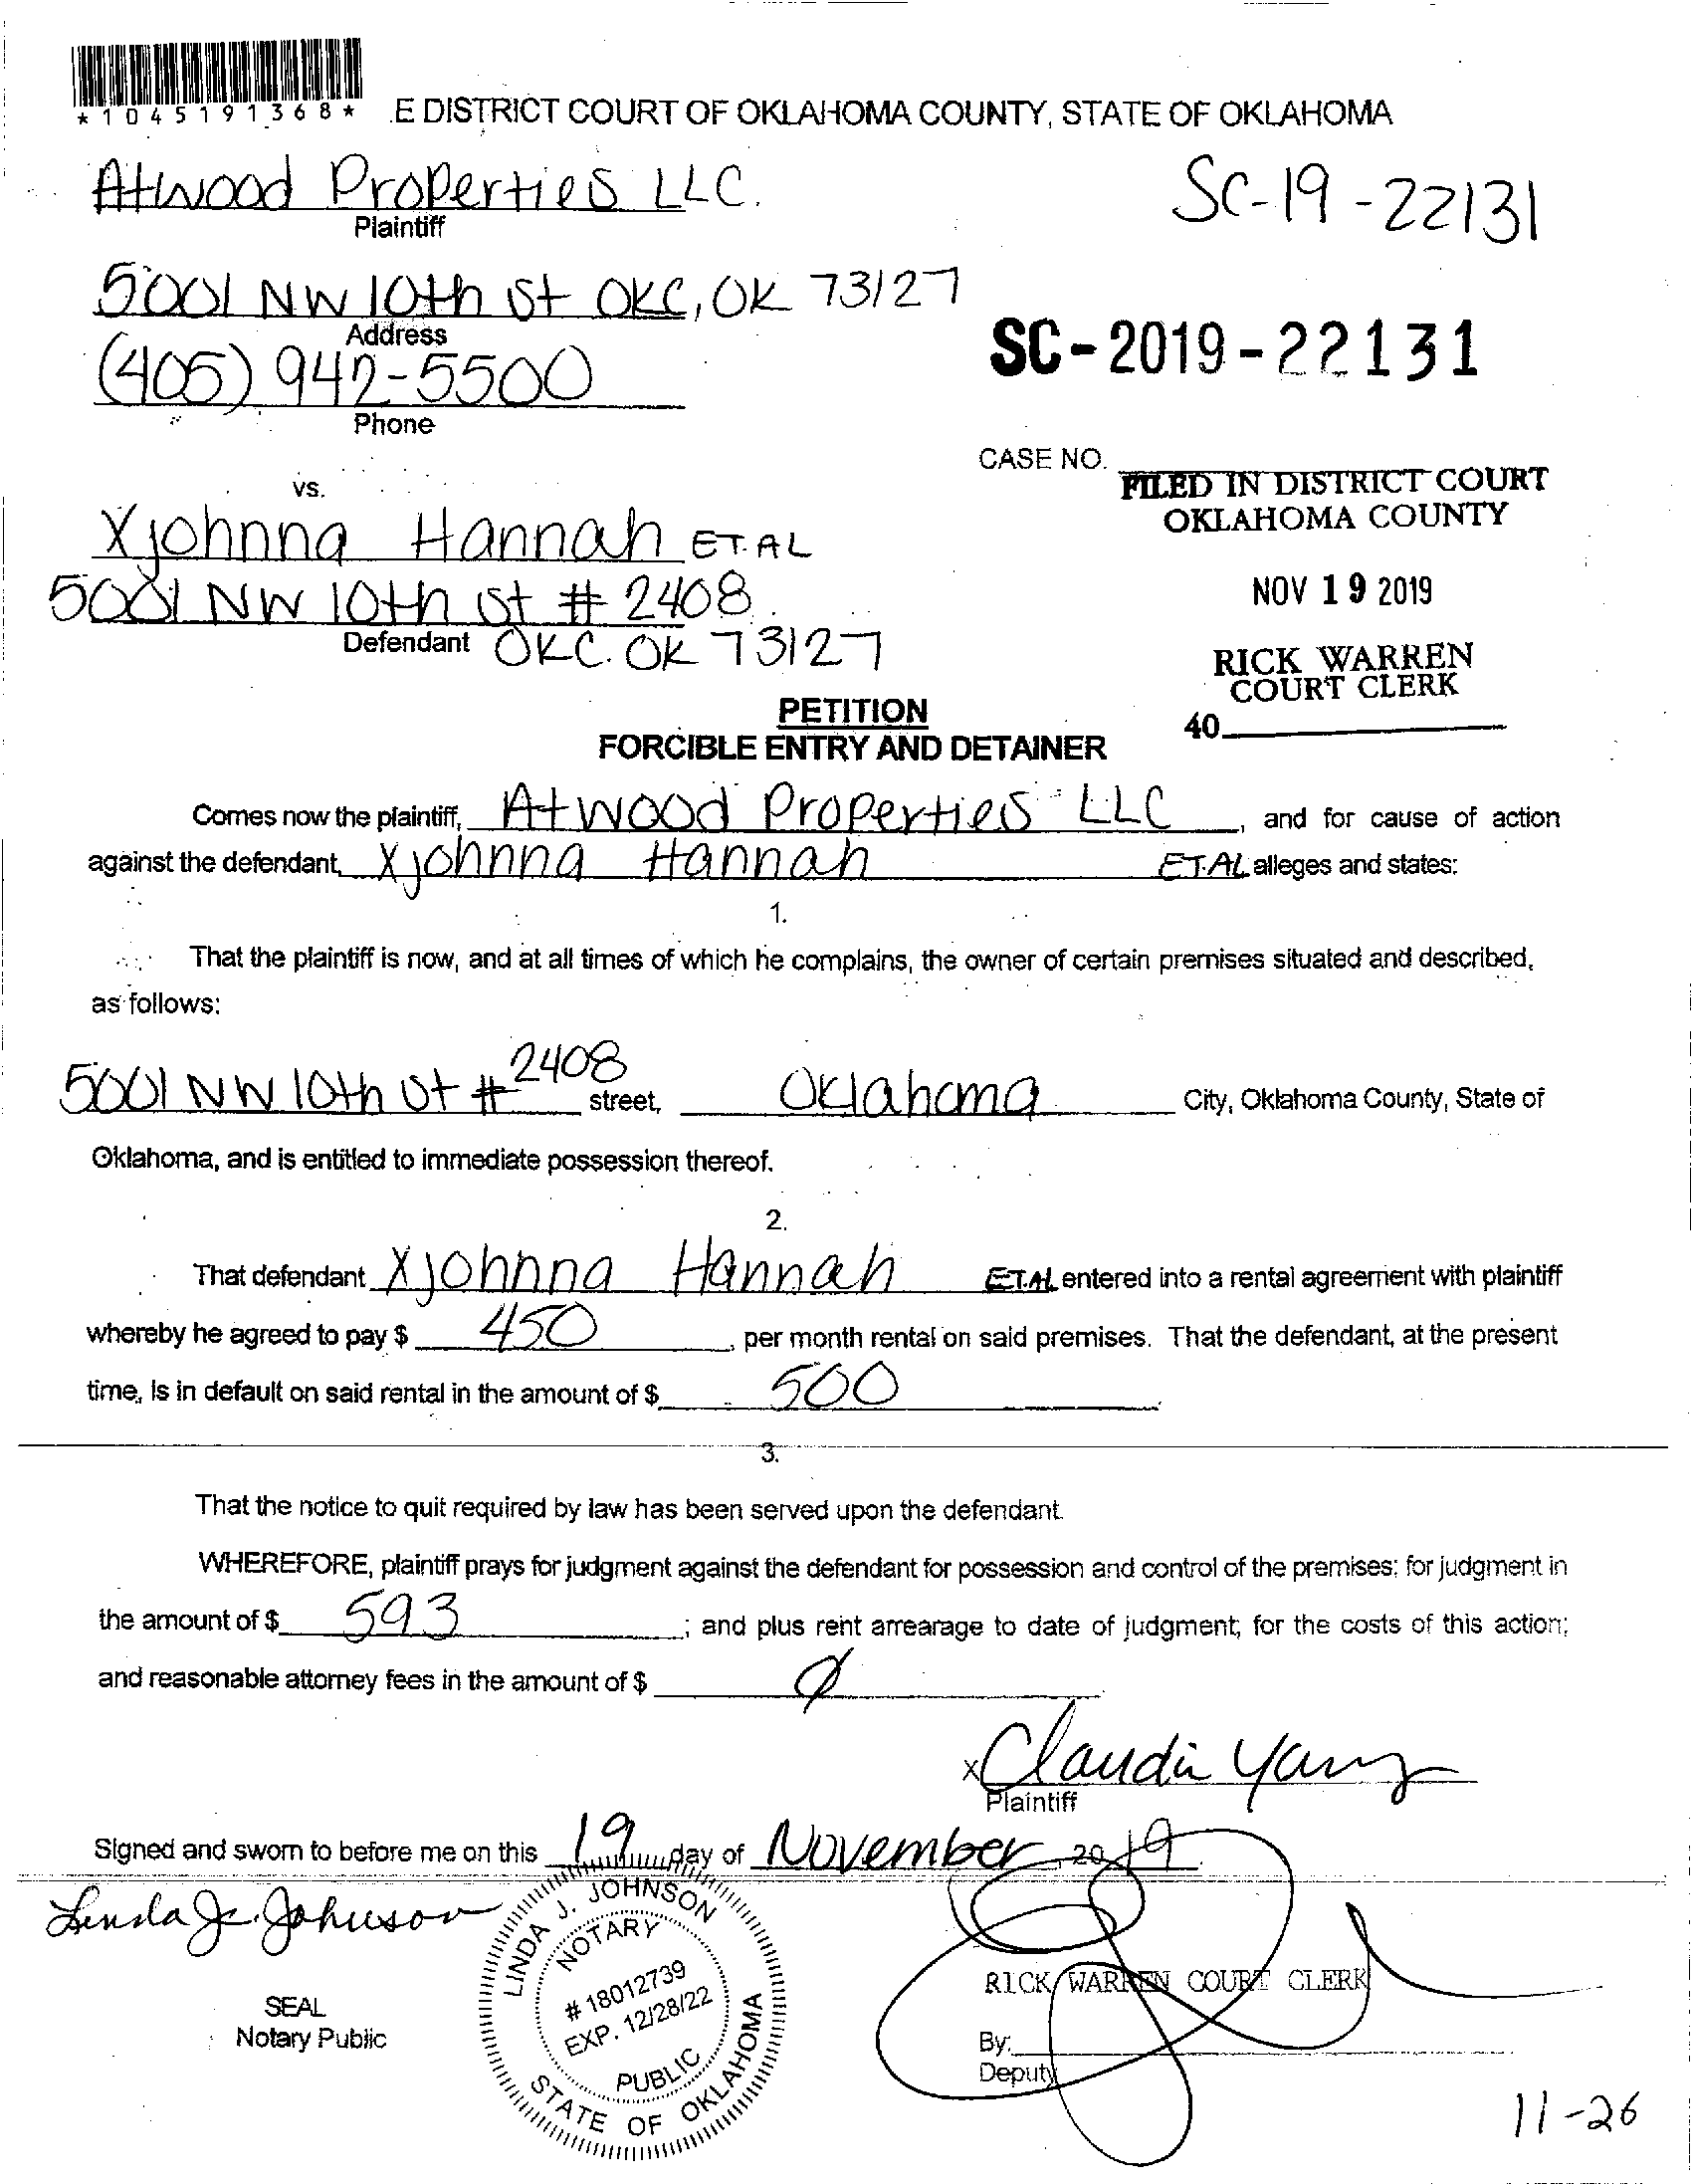 *1045191368*
E DISTRICT COURT OF OKLAHOMA COUNTY, STATE OF OKLAHOMA
Atwood Properties LLC.
Plaintiff
SC-19-22131
5001 NW 10th St OKC, OK 73127
Address
(405) 942-5500
Phone
SC-2019-22131
CASE NO.
FILED IN DISTRICT COURT
OKLAHOMA COUNTY
NOV 19 2019
RICK WARREN
COURT CLERK
40
vs.
Xjohnna Hannah ET.AL
5001 NW 10th St # 2408
Defendant OKC. OK 73127
PETITION
FORCIBLE ENTRY AND DETAINER
Comes now the plaintiff, Atwood Properties LLC, and for cause of action
against the defendant, Xjohnna Hannah ET.AL alleges and states:
1.
That the plaintiff is now, and at all times of which he complains, the owner of certain premises situated and described,
as follows:
5001 NW 10th St # 2408 street, Oklahoma City, Oklahoma County, State of
Oklahoma, and is entitled to immediate possession thereof.
2.
That defendant Xjohnna Hannah ET.AL entered into a rental agreement with plaintiff
whereby he agreed to pay $ 450, per month rental on said premises. That the defendant, at the present
time, is in default on said rental in the amount of $ 500
3.
That the notice to quit required by law has been served upon the defendant.
WHEREFORE, plaintiff prays for judgment against the defendant for possession and control of the premises; for judgment in
the amount of $ 593; and plus rent arrearage to date of judgment; for the costs of this action;
and reasonable attorney fees in the amount of $ Ø
X Claudia Yanz
Plaintiff
Signed and sworn to before me on this 19 day of November, 2019
Linda J. Johnson
SEAL
Notary Public
LINDA J. JOHNSON
NOTARY
# 18012739
EXP. 12/28/22
PUBLIC
STATE OF OKLAHOMA
RICK WARREN COURT CLERK
By:
Deputy
11-26